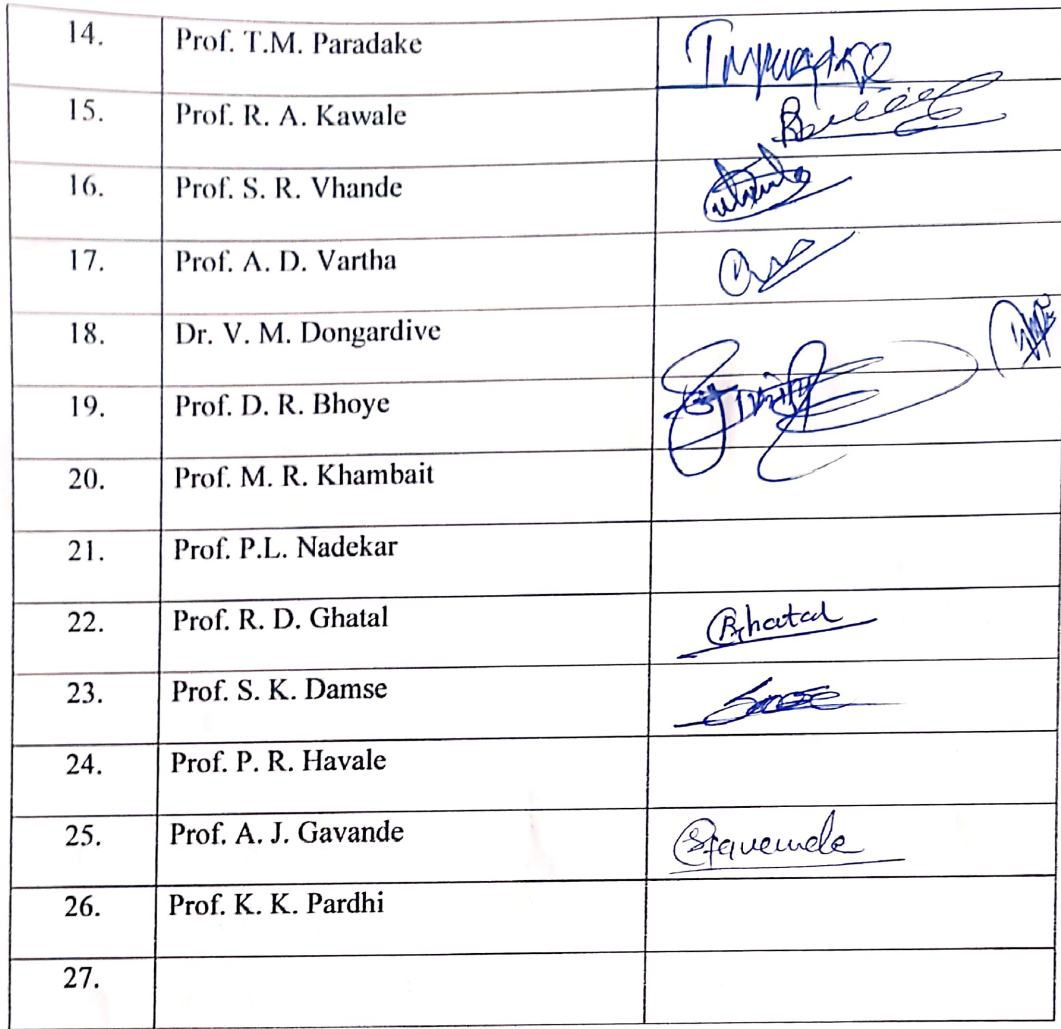 14. Prof. T.M. Paradake
15. Prof. R. A. Kawale
16. Prof. S. R. Vhande
17. Prof. A. D. Vartha
18. Dr. V. M. Dongardive
19. Prof. D. R. Bhoye
20. Prof. M. R. Khambait
21. Prof. P.L. Nadekar
22. Prof. R. D. Ghatal
23. Prof. S. K. Damse
24. Prof. P. R. Havale
25. Prof. A. J. Gavande
26. Prof. K. K. Pardhi
27.